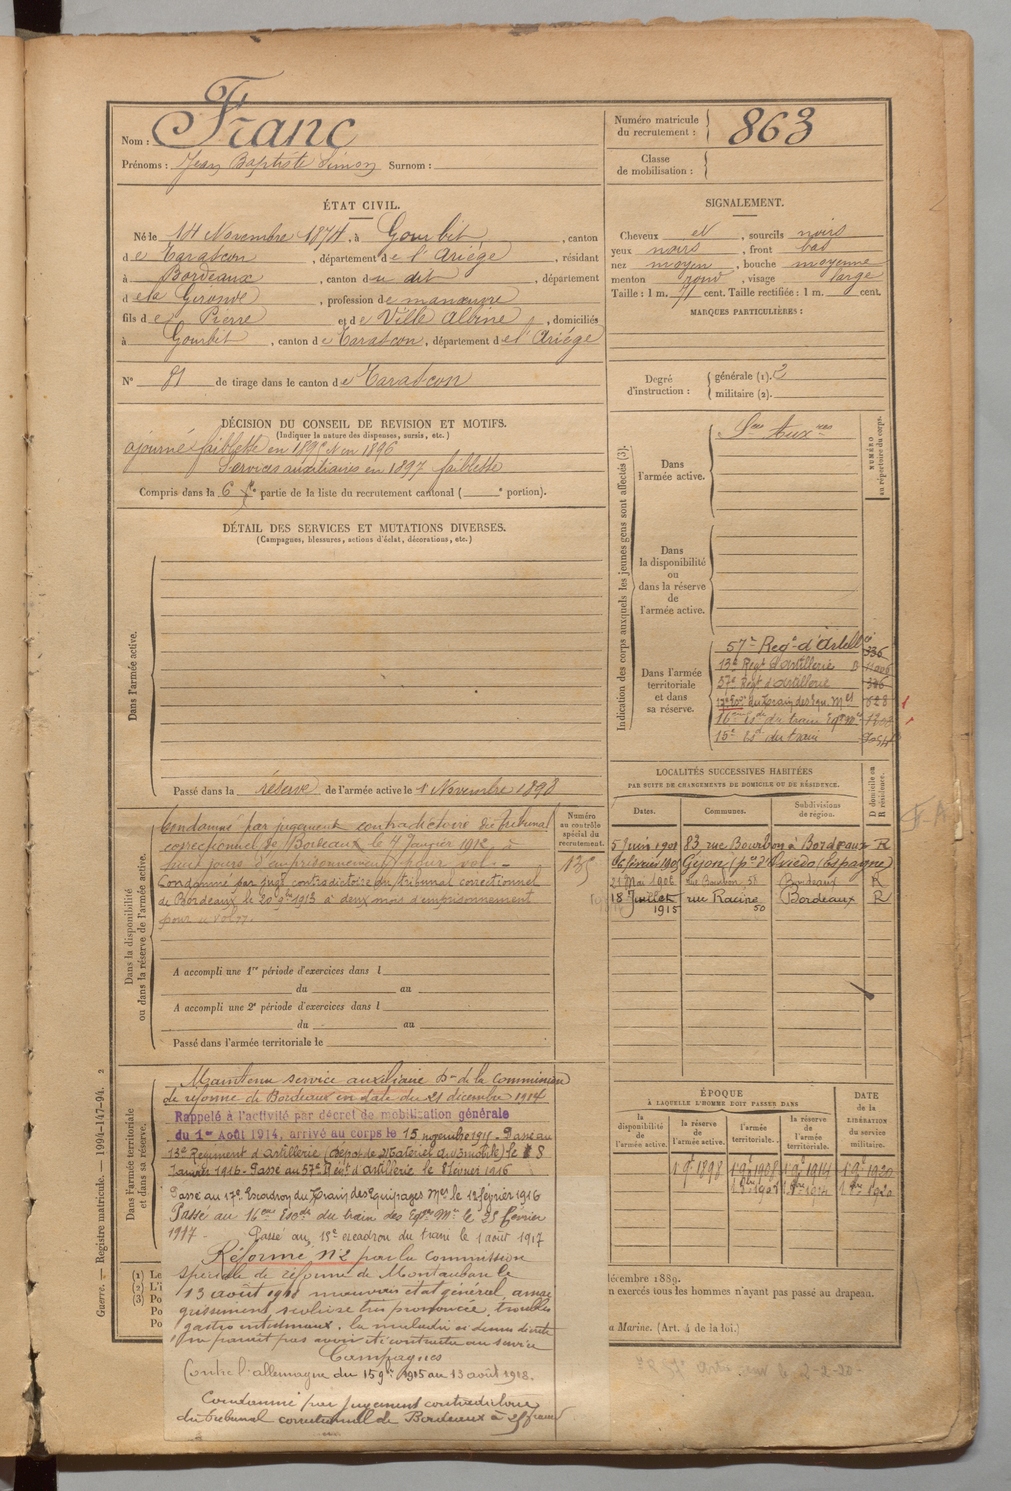 Nom : Franc
Prénoms : Jean Baptiste Simon Surnom :
Numéro matricule du recrutement : 863
Classe de mobilisation :
ÉTAT CIVIL.
Né le 14 Novembre 1874, à Gourbit, canton
de Tarascon, département de l'Ariège, résidant
à Bordeaux, canton du dit, département
de la Gironde, profession de manœuvre
fils de Pierre et de Ville Albine, domiciliés
à Gourbit, canton de Tarascon, département de l'Ariège
N° 81 de tirage dans le canton de Tarascon
SIGNALEMENT.
Cheveux et, sourcils noirs
yeux noirs, front bas
nez moyen, bouche moyenne
menton rond, visage large
Taille : 1 m. 71 cent. Taille rectifiée : 1 m. cent.
MARQUES PARTICULIÈRES :
Degré d'instruction : générale (1). 2
militaire (2).
DÉCISION DU CONSEIL DE REVISION ET MOTIFS.
(Indiquer la nature des dispenses, sursis, etc.)
ajourné faiblesse en 1895 et en 1896
Services auxiliaires en 1897 faiblesse
Compris dans la 6e partie de la liste du recrutement cantonal ( e portion).
DÉTAIL DES SERVICES ET MUTATIONS DIVERSES.
(Campagnes, blessures, actions d'éclat, décorations, etc.)
Dans l'armée active.
Passé dans la réserve de l'armée active le 1er Novembre 1898
Indication des corps auxquels les jeunes gens sont affectés (3).
NUMÉRO au répertoire du corps.
Dans l'armée active.
Sces Auxres
Dans la disponibilité ou dans la réserve de l'armée active.
Dans l'armée territoriale et dans sa réserve.
57e Regt d'Artillie 336
13e Regt d'Artillerie
57e Regt d'Artillerie 336
17e Eson du Train des Equ. Mres 628
16me Eson du train Eqes Mres
15e Eson du train
Dans la disponibilité ou dans la réserve de l'armée active.
Condamné par jugement contradictoire du tribunal
correctionnel de Bordeaux le 4 Janvier 1912 à
huit jours d'emprisonnement pour vol.
Condamné par jugt contradictoire du tribunal correctionnel
de Bordeaux le 20 9bre 1913 à deux mois d'emprisonnement
pour "vol".
A accompli une 1re période d'exercices dans l
du au
A accompli une 2e période d'exercices dans l
du au
Passé dans l'armée territoriale le
Numéro au contrôle spécial du recrutement.
LOCALITÉS SUCCESSIVES HABITÉES
PAR SUITE DE CHANGEMENTS DE DOMICILE OU DE RÉSIDENCE.
Dates. Communes. Subdivisions de région. D domicile ou R résidence.
5 Juin 1901 83 rue Bourbon à Bordeaux R
6 février 1905 Gijon (pce d'Oviédo (Espagne)
21 Mai 1906 rue Bourbon, 58 Bordeaux R
18 Juillet 1915 rue Racine 50 Bordeaux R
ÉPOQUE
À LAQUELLE L'HOMME DOIT PASSER DANS
la disponibilité de l'armée active.
la réserve de l'armée active.
l'armée territoriale.
la réserve de l'armée territoriale.
DATE de la LIBÉRATION du service militaire.
1 9e 1898 1 9e 1908 1 9e 1914 1 9e 1920
Dans l'armée territoriale et dans sa réserve.
Maintenu service auxiliaire Don de la commission
de réforme de Bordeaux en date du 21 décembre 1914
Rappelé à l'activité par décret de mobilisation générale
du 1er Août 1914, arrivé au corps le 15 novembre 1915. Passé au
13e Régiment d'Artillerie (dépôt de Matériel automobile) le 8
Janvier 1916. Passé au 57e Régt d'Artillerie le 8 février 1916
Passé au 17e Escadron du Train des Equipages Mres le 12 février 1916
Passé au 16me Eson du train des Eqes Mres le 25 février
1917. Passé au 15e escadron du train le 1 août 1917
Réformé N°2 par la Commission
spéciale de réforme de Montauban le
13 août 1918 mauvais état général, amai
grissement scoliose très prononcée, troubles
gastro intestinaux. la maladie ci dessus décrite
ne paraît pas avoir été contractée au service
Campagnes
Contre l'allemagne du 15 9bre 1915 au 13 août 1918.
Condamné par jugement contradictoire
du tribunal correctionnel de Bordeaux à 25 francs
décembre 1889.
n exercés tous les hommes n'ayant pas passé au drapeau.
a Marine. (Art. 4 de la loi.)
(1) Le
(2) L'i
(3) Po
Po
Po
Guerre. — Registre matricule. — 1994-147-94. 2